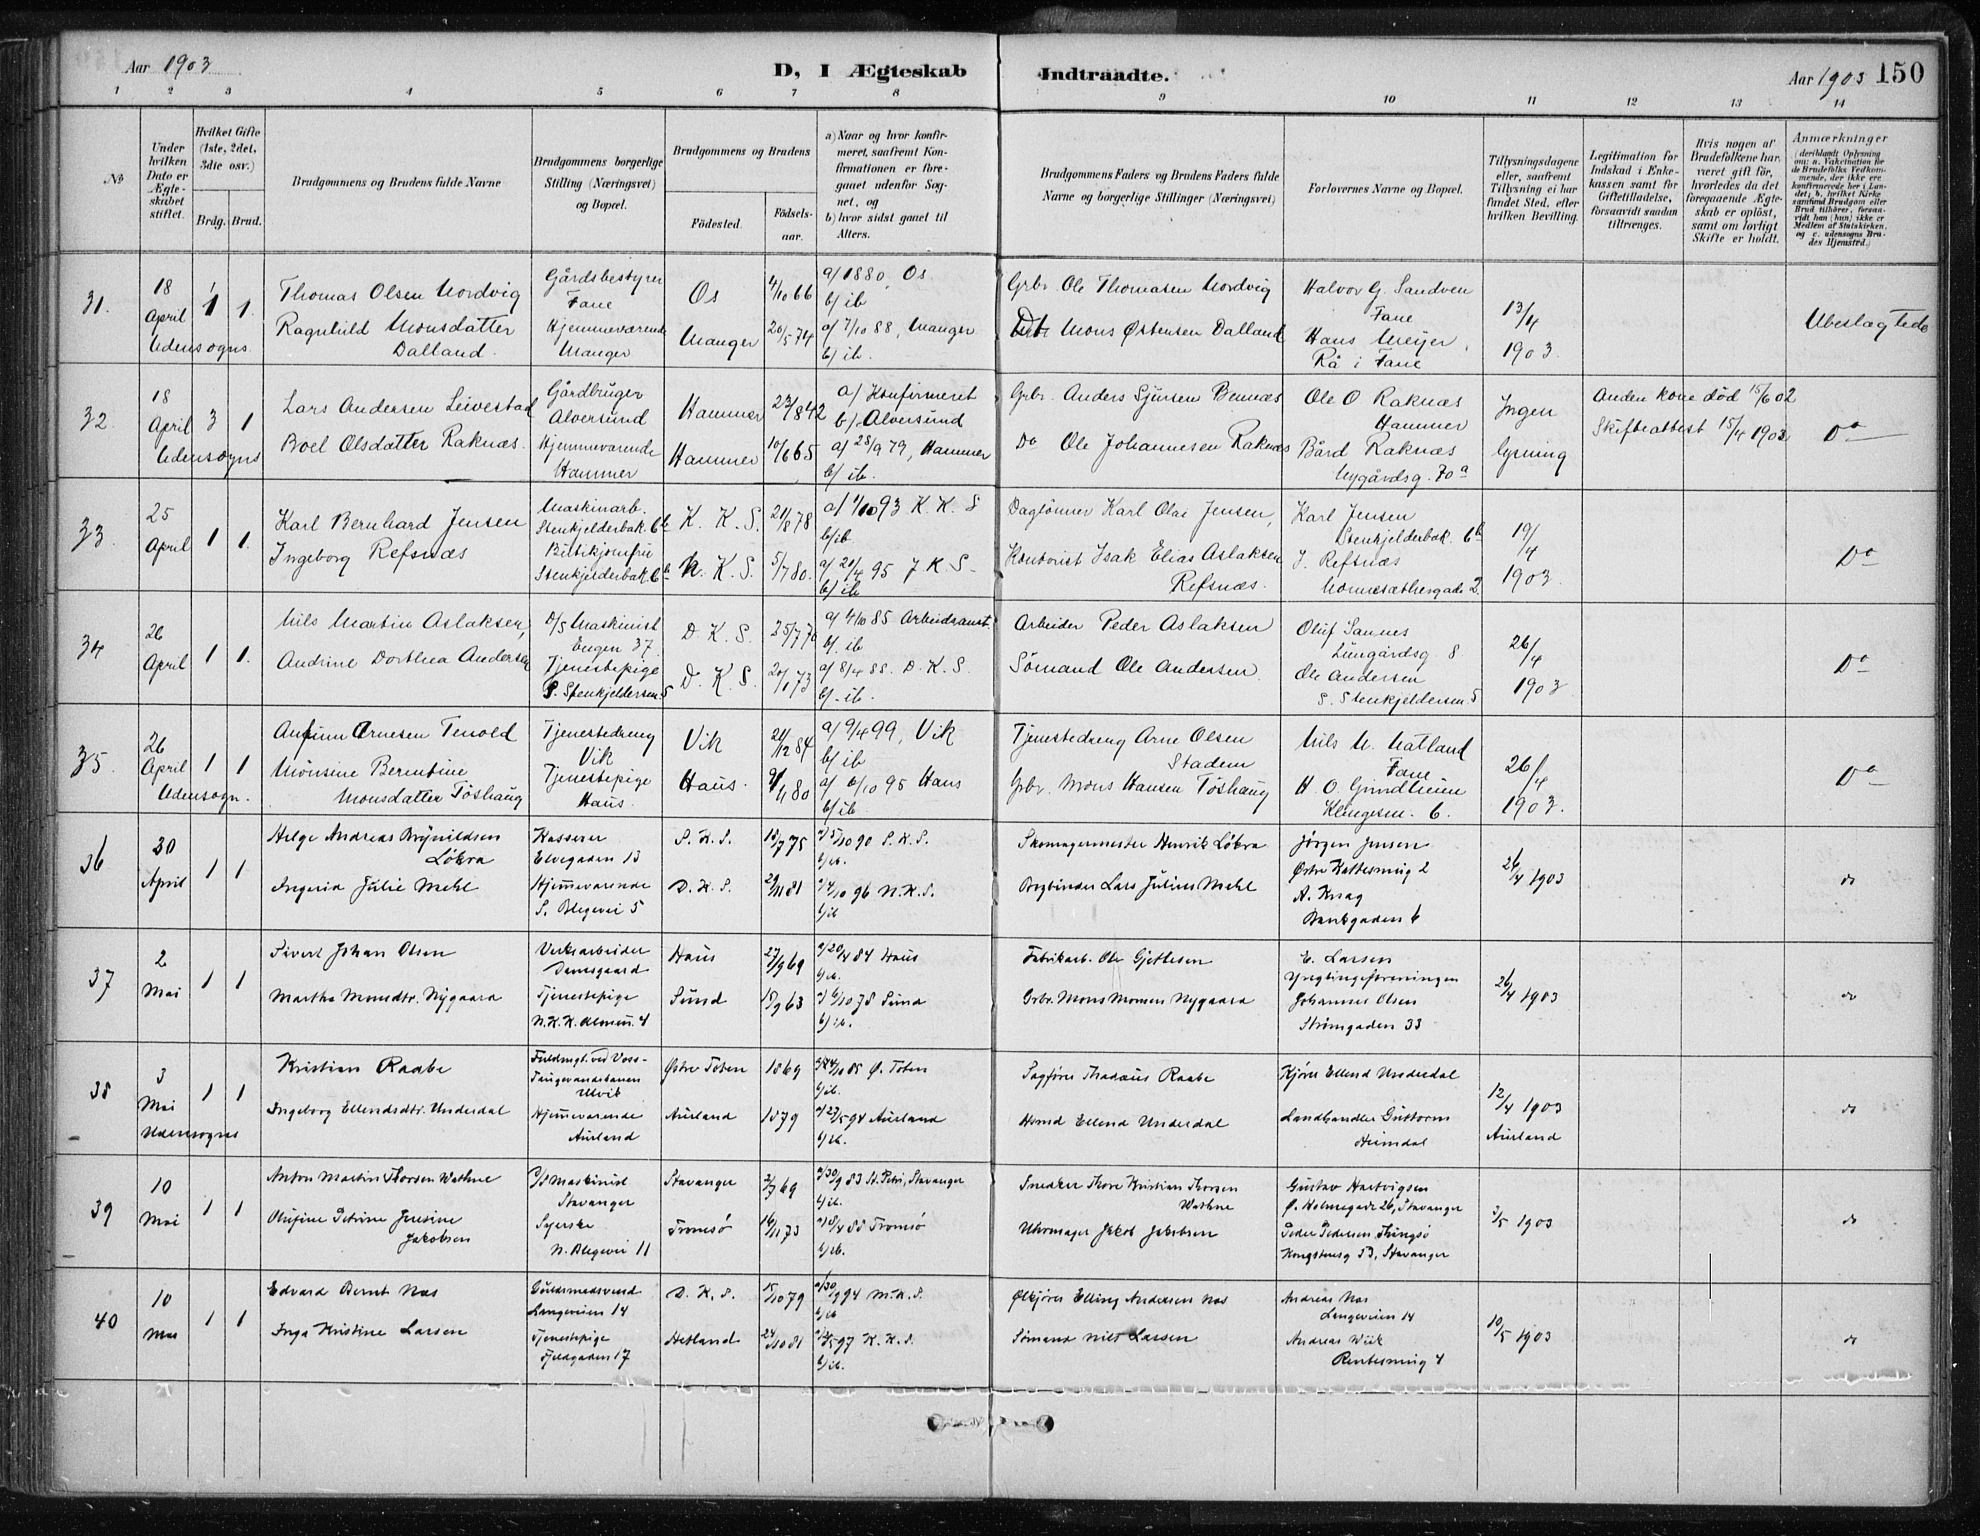 Aar 1903
D, I Ægteskab
Indtraadte.
Aar 1903 150
1 2 3 4 5 6 7 8 9 10 11 12 13 14
No
Under hvilken Dato er Ægteskabet stiftet.
Hvilket Gifte (1ste, 2det, 3die osv.)
Brdg. Brud.
Brudgommens og Brudens fulde Navne
Brudgommens borgerlige Stilling (Næringsvei) og Bopæl.
Brudgommens og Brudens
Födested. Födselsaar.
a) Naar og hvor konfirmeret, saafremt Konfirmationen er foregaaet udenfor Sognet, og
b) hvor sidst gaaet til Alters.
Brudgommens Faders og Brudens Faders fulde Navne og borgerlige Stillinger (Næringsvei)
Forlovernes Navne og Bopæl.
Tillysningsdagene eller, saafremt Tillysning ei har fundet Sted, efter hvilken Bevilling.
Legitimation for Indskud i Enkekassen samt for Giftetilladelse, forsaavidt saadan tiltrænges.
Hvis nogen af Brudefolkene har været gift för, hvorledes da det foregaaende Ægteskab er oplöst, samt om lovligt Skifte er holdt.
Anmærkninger (deriblandt Oplysning om: a. Vakcination for de Brudefolks Vedkommende, der ikke ere konfirmerede her i Landet; b. hvilket Kirkesamfund Brudgom eller Brud tilhörer, forsaavidt han (hun) ikke er Medlem af Statskirken, og c. udensogns Brudes Hjemsted.)
31. 18 April Udensogns 1 1.
Thomas Olsen Nordvig
Gårdsbestyrer Fane
Os 4/10 66
a/ 1880, Os b/ ib
Ragnhild Monsdatter Dalland.
Hjemmeværende Manger
Manger 20/5 74
a/ 7/10 88, Manger b/ ib.
Grbr Ole Thomasen Nordvig
Mons Østensen Dalland
Halvor G. Sandven Fane
Hans Meijer, Rå i Fane
13/4 1903.
Ubeslægtede
32. 18 April Udensogns 3 1
Lars Andersen Leivestad
Gårdbruger Alversund
Hammer 23/8 42
a/ Konfirmeret b/ Alversund
Boel Olsdatter Raknæs.
Hjemmeværende Hammer
Hammer 10/6 65
a/ 28/9 79, Hammer b/ ib.
Grbr. Anders Sjursen Bennæs
Do Ole Johannesen Raknæs
Ole O Raknæs Hammer
Bård Raknæs Nygårdsg. 70a
Ingen lysning
Anden kone död 15/6 02
Skifteattest 15/4 1903.
Do
33. 25 April 1 1.
Karl Bernhard Jensen
Maskinarb. Stenkjelderbak. 6b
K. K. S. 21/8 78
a/ 1/10 93 K. K. S b/ ib
Ingeborg Refsnæs
Stenkjelderbak. 6b
N. K. S. 5/7 80.
a/ 20/4 95 J. K. S. b/ ib
Daglönner Karl Olai Jensen,
Kontorist Isak Elias Aslaksen Refsnæs.
Karl Jensen Stenkjelderbak. 6b
J. Refsnæs
19/4 1903.
Do
34 26 April 1 1.
Nils Martin Aslaksen,
D/S Maskinist Engen 37.
D. K. S. 25/7 70
a/ 4/10 85 Arbeidsanst. b/ ib
Andrine Dorthea Andersen
Tjenestepige S. Stenkjeldersm. 5
D. K. S. 20/1 73
a/ 8/4 88. D. K. S. b/ ib.
Arbeider Peder Aslaksen
Sömand Ole Andersen
Oluf Sannes Lungårdsg. 8
Ole Andersen S. Stenkjeldersm. 5
26/4 1903.
Do
35. 26 April Udensogn. 1 1
Anfinn Arnesen Tenold
Tjenestedreng Vik
Vik 21/12 84
a/ 9/4 99, Vik b/ ib
Mönsine Berentine Monsdatter Töshaug
Tjenestepige Haus.
Haus. 9/4 80
a/ 6/10 95 Haus b/ ib
Tjenestedreng Arne Olsen Stadem
Grbr. Mons Hansen Töshaug
Nils N. Natland Fane
H. O. Grindheim Klingesm. 6.
26/4 1903.
Do
36 30 April 1 1
Helge Andreas Brynildsen Lökra
Kasserer Elvegaden 13
S. K. S. 18/7 75
a/ 5/10 90 S. K. S. b/ ib.
Angeria Julie Mehl
Hjemmeværende S. Blegevei 5
D. K. S. 29/11 81
a/ 4/10 96 N. K. S. b/ ib
Skomagermester Henrik Lökra
Bogbinder Lars Julius Mehl
Jörgen Jensen Østre Kattesmug 2
A. Krag Bankgaden 6
26/4 1903
do
37 2 Mai 1 1
Sivert Johan Olsen
Verksarbeider Damsgaard
Haus 27/9 69
a/ 20/4 84 Haus b/ ib.
Martha Monsdtr. Nygaard
Tjenestepige N. K. K. Almen. 4
Sund 18/9 63
a/ 6/10 78 Sund b/ ib.
Fabrikarb. Ole Gjettesen
Grbr. Mons Monsen Nygaard
E. Larsen Ynglingeforeningen
Johannes Olsen Strömgaden 33
26/4 1903
do
38 3 Mai Udensogns 1 1
Kristian Raabe
Fuldmgt. ved Voss-Taugevandsbanen Ulvik
Østre Toten 1869
85 Ø. Toten b/ ib.
Ingeborg Ellendsdtr. Underdal
Hjemmeværende Aurland
Aurland 1879
a/ 27/5 94 Aurland b/ ib.
Sagförer Thadæus Raabe
Ellend Underdal
Ellend Underdal
Landhandler Guttorm Heimdal
12/4 1903 Aurland
do
39 10 Mai 1 1
Anton Martin Thorsen Wathne
D/S Maskinist Stavanger
Stavanger 2/7 69
a/ 30/9 83 St. Petri, Stavanger b/ ib.
Olufine Petrine Jensine Jakobsen
Syerske N. Blegevei 11
Tromsö 16/11 73
a/ 8/4 88 Tromsö b/ ib.
Snedker Thore Kristian Thorsen Wathne
Uhrmager Jakob Jakobsen
Gustav Hartvigsen Ø. Holmegade 26, Stavanger
Peder Pedersen Kongsteinsg 53, Stavanger
3/5 1903
do
40 10 Mai 1 1
Edvard Bernt Næs
Guldsmedsvend Langeveien 14
D. K. S. 15/10 79
a/ 30/9 94 M. K. S. b/ ib.
Inga Kristine Larsen
Tjenestepige Fjeldgaden 17
Hetland 24/10 81
97 K. K. S. b/ ib.
Ølkjörer Elling Andersen Næs
Sömand Nils Larsen
Andreas Næs Langeveien 14
Andreas Wiik 4
10/5 1903
do